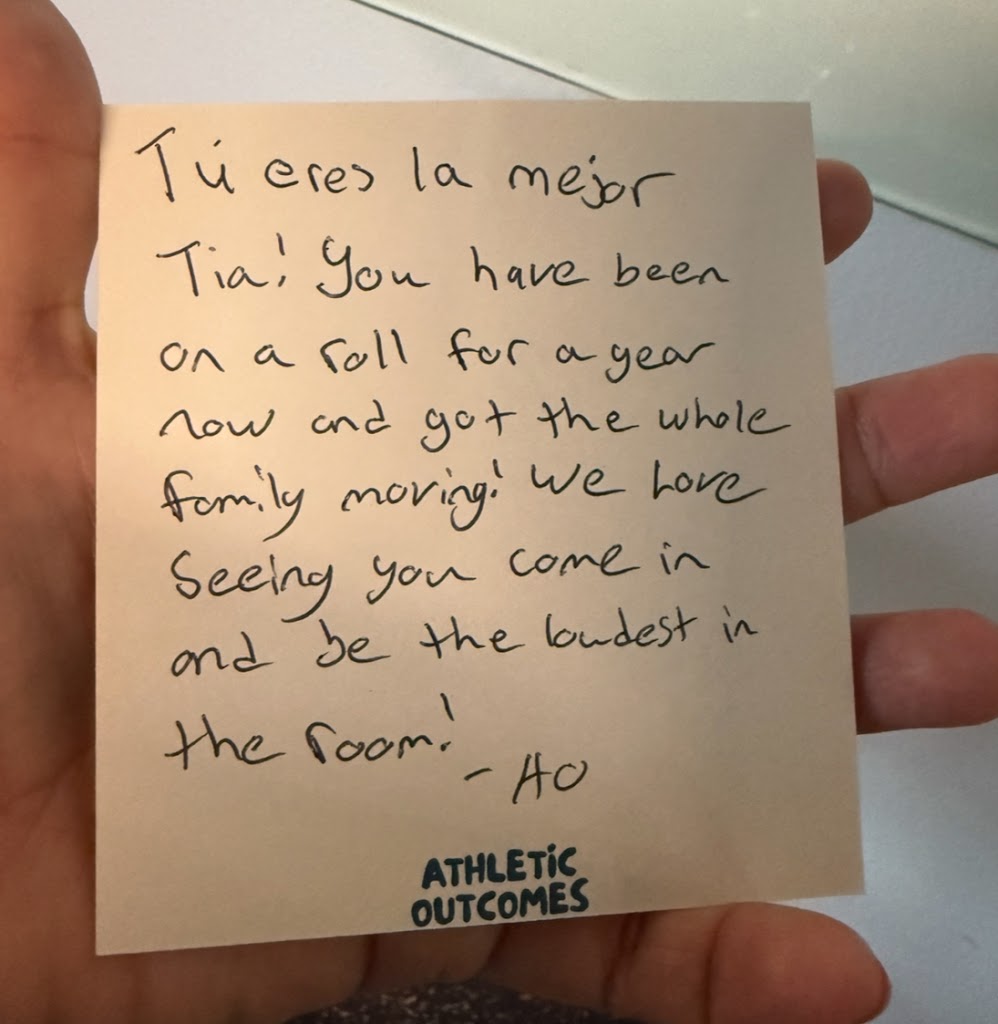 Tú eres la mejor
Tia! You have been
on a roll for a year
now and got the whole
family moving! We love
Seeing you come in
and be the loudest in
the room!
- AO
ATHLETIC
OUTCOMES